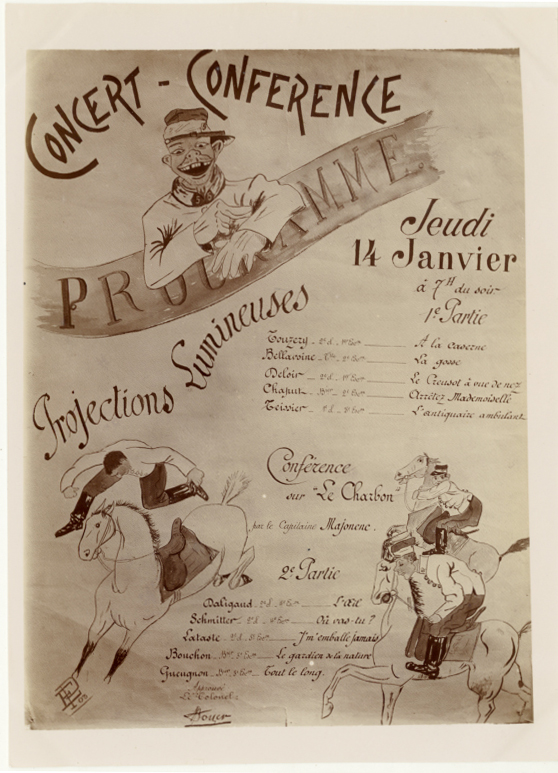 CONCERT - CONFERENCE
PROGRAMME.
Jeudi
14 Janvier
à 7H du soir
1e Partie
Projections Lumineuses
Touzery - 2e d. - 1er Eon — A la caserne
Bellavoine - 2e Eon — La gosse
Deloir - 2e d. - 1er Eon — Le Creusot à vue de nez
Chaput - 2e Eon — Arrêtez Mademoiselle
Teissier — L'antiquaire ambulant
Conférence
sur "Le Charbon"
par le Capitaine Majonenc.
2e Partie
Daligaud - 2e d. — L'axe
Schmitter - 2e d. — Où vas-tu ?
Lataste - 2e d. — J'm'emballe jamais
Bouchon — Le gardien de la nature
Gueugnon — Tout le long.
Le Colonel